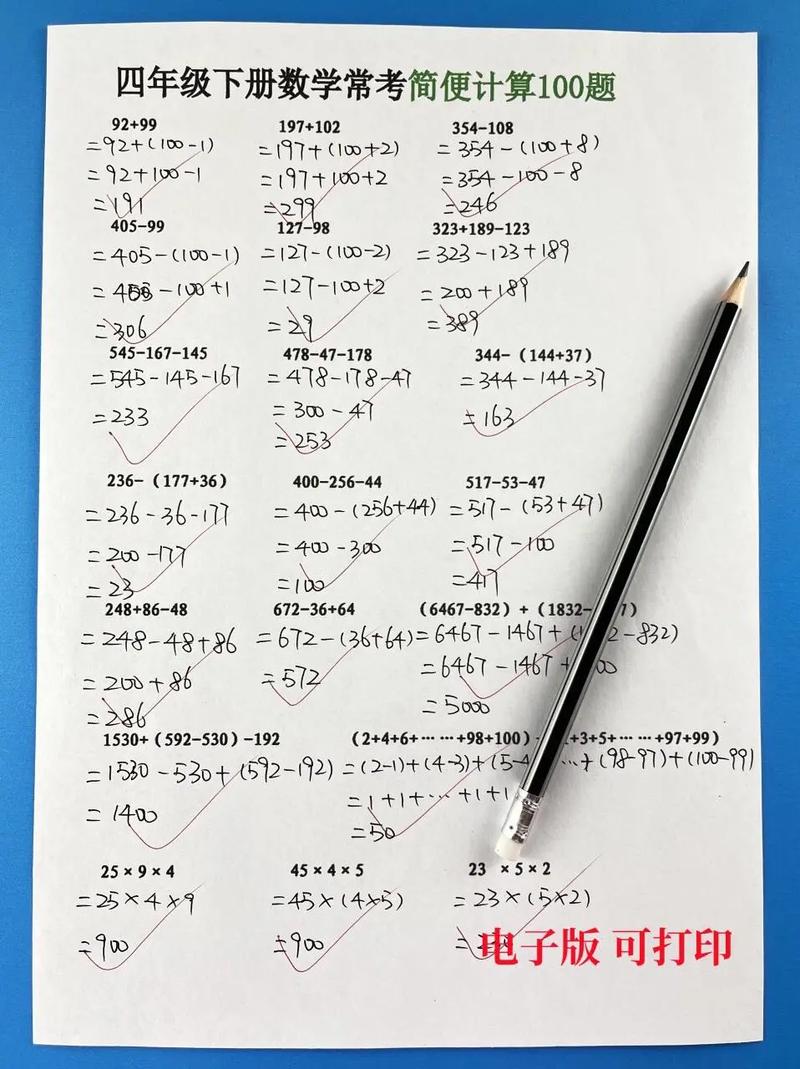 四年级下册数学常考简便计算100题
92+99 197+102 354-108
=92+(100-1) =197+(100+2) =354-(100+8)
=92+100-1 =197+100+2 =354-100-8
=191 =299 =246
405-99 127-98 323+189-123
=405-(100-1) =127-(100-2) =323-123+189
=405-100+1 =127-100+2 =200+189
=306 =29 =389
545-167-145 478-47-178 344-(144+37)
=545-145-167 =478-178-47 =344-144-37
=233 =300-47 =163
=253
236-(177+36) 400-256-44 517-53-47
=236-36-177 =400-(256+44) =517-(53+47)
=200-177 =400-300 =517-100
=23 =100 =417
248+86-48 672-36+64 (6467-832)+(1832- 7)
=248-48+86 =672-(36+64) =6467-1467+(1 2-832)
=200+86 =572 =6467-1467+ 00
=286 =5000
1530+(592-530)-192 (2+4+6+……+98+100) +3+5+……+97+99)
=1530-530+(592-192) =(2-1)+(4-3)+(5-4 …+(98-97)+(100-99)
=1400 =1+1+…+1+1
=50
25×9×4 45×4×5 23 ×5×2
=25×4×9 =45×(4×5) =23×(5×2)
=900 =900 =2
电子版 可打印